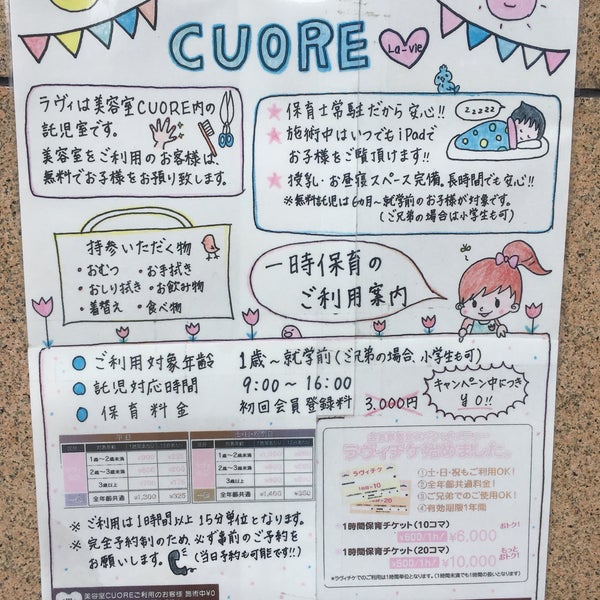 CUORE
La-vie
ラヴィは美容室CUORE内の
託児室です。
美容室をご利用のお客様は
無料でお子様をお預り致します。
★ 保育士常駐だから安心!!
★ 施術中はいつでもiPadで
お子様をご覧頂けます!!
★ 授乳・お昼寝スペース完備。長時間でも安心!!
※無料託児は6カ月〜就学前のお子様が対象です。
(ご兄弟の場合は小学生も可)
zzzzz
持参いただく物
・おむつ ・お手拭き
・おしり拭き ・お飲み物
・着替え ・食べ物
一時保育の
ご利用案内
● ご利用対象年齢 1歳〜就学前(ご兄弟の場合、小学生も可)
● 託児対応時間 9:00〜16:00
● 保育料金 初回会員登録料 3,000円
キャンペーン中につき
¥0!!
平日
1歳〜2歳未満
2歳〜3歳未満
3歳以上
全年齢共通 ¥1,300 ¥325
1歳〜2歳未満
2歳〜3歳未満
3歳以上
全年齢共通
※ ご利用は1時間以上15分単位となります。
※ 完全予約制のため、必ず事前のご予約を
お願いします。(当日予約も可能です!!)
ラヴィチケ始めました。
ラヴィチケ
①土・日・祝もご利用OK!
②全年齢共通料金!
③ご兄弟でのご使用OK!
④有効期限1年間
1時間保育チケット(10コマ)
¥600/1h! ¥6,000 おトク!
1時間保育チケット(20コマ)
¥500/1h! ¥10,000 もっとおトク!
※ラヴィチケでのご利用は1時間単位となります。(1時間未満でも1時間の扱いとなります)
美容室CUOREご利用のお客様 施術中¥0